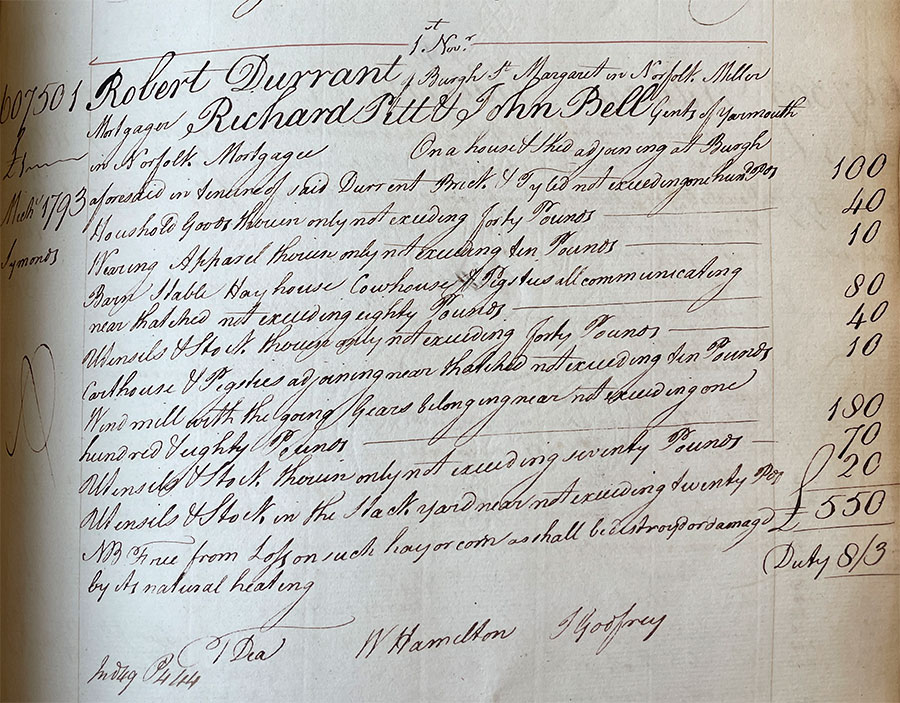 1st Novr
607501
Robert Durrant of Burgh St Margaret in Norfolk Miller
Mortgager Richard Pitt & John Bell Gents of Yarmouth
in Norfolk Mortgagee On a house & shed adjoining at Burgh
Michs 1793 aforesaid in tenure of said Durrent Brick & Tyled not exceeding one hund Pds 100
Symonds
Houshold Goods therein only not exceeding forty Pounds 40
Wearing Apparel therein only not exceeding ten Pounds 10
Barn Stable Hayhouse Cowhouse & Pigsties all communicating
near thatched not exceeding eighty Pounds 80
Utensils & Stock therein only not exceeding forty Pounds 40
Carthouse & Pigsties adjoining near thatched not exceeding ten Pounds 10
Wind mill with the going Gears belonging near not exceeding one
hundred & eighty Pounds 180
Utensils & Stock therein only not exceeding seventy Pounds 70
Utensils & Stock in the Stack yard near not exceeding twenty Pds 20
£550
NB Free from Loss on such hay or corn as shall be destroyd or damagd
by its natural heating
Duty 8/3
T Dea W Hamilton J Godfrey